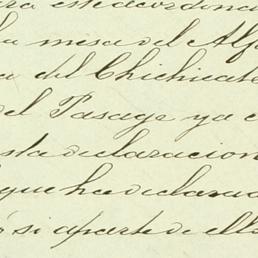 este acordona
la mesa del Alf
a del Chichicat
del Pasage ya e
sta declaracion
que ha declarad
si aparte de ella